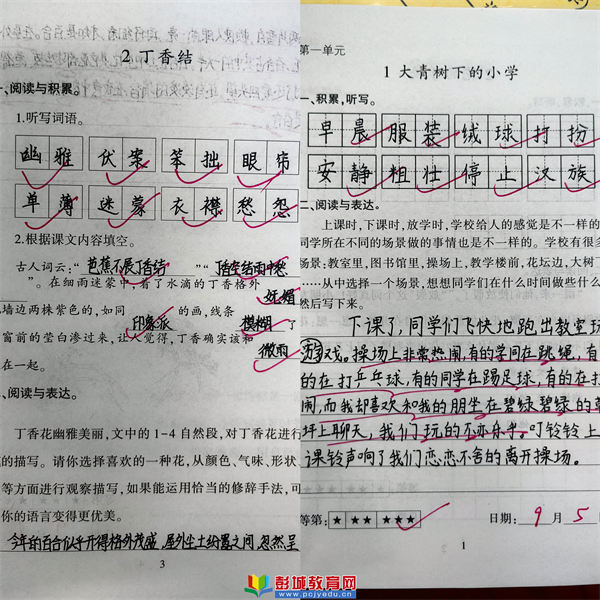 2 丁香结
一、阅读与积累。
1.听写词语。
幽雅 伏案 笨拙 眼帘
单薄 迷蒙 衣襟 愁怨
2.根据课文内容填空。
古人词云：“芭蕉不展丁香结”“丁香空结雨中愁
”。在细雨迷蒙中，着了水滴的丁香格外
妩媚
墙边两株紫色的，如同
印象派 的画，线条 模糊 了
窗前的莹白渗过来，让人觉得，丁香确实该和
微雨
在一起。
、阅读与表达。
丁香花幽雅美丽，文中的1-4自然段，对丁香花进行
的描写。请你选择喜欢的一种花，从颜色、气味、形状、
等方面进行观察描写，如果能运用恰当的修辞手法，可
你的语言变得更优美。
今年的百合似乎开得格外茂盛，屋外尘土 之间，忽然呈
3
第一单元
1 大青树下的小学
一、积累，听写。
早晨 服装 绒球 打扮
安静 粗壮 停止 汉族
二、阅读与表达。
上课时，下课时，放学时，学校给人的感觉是不一样的
同学所在不同的场景做的事情也是不一样的。学校有很多
场景：教室里，图书馆里，操场上，教学楼前，花坛边，大树丁
……从中选择一个场景，想想同学们在什么时间做些什么
然后写下来。
下课了，同学们飞快地跑出教室玩
游戏。操场上非常热闹，有的学同在跳绳，有
的在打乒乓球，有的同学在踢足球，有的在打
闹，而我却喜欢和我的朋生在碧绿碧绿的草
坪上聊天，我们玩的不亦乐乎。叮铃铃上
课铃声响了我们恋恋不舍的离开操场。
等第：★★★ ★★★ 日期：9 月 5
1
彭城教育网
www.pcjyedu.cn